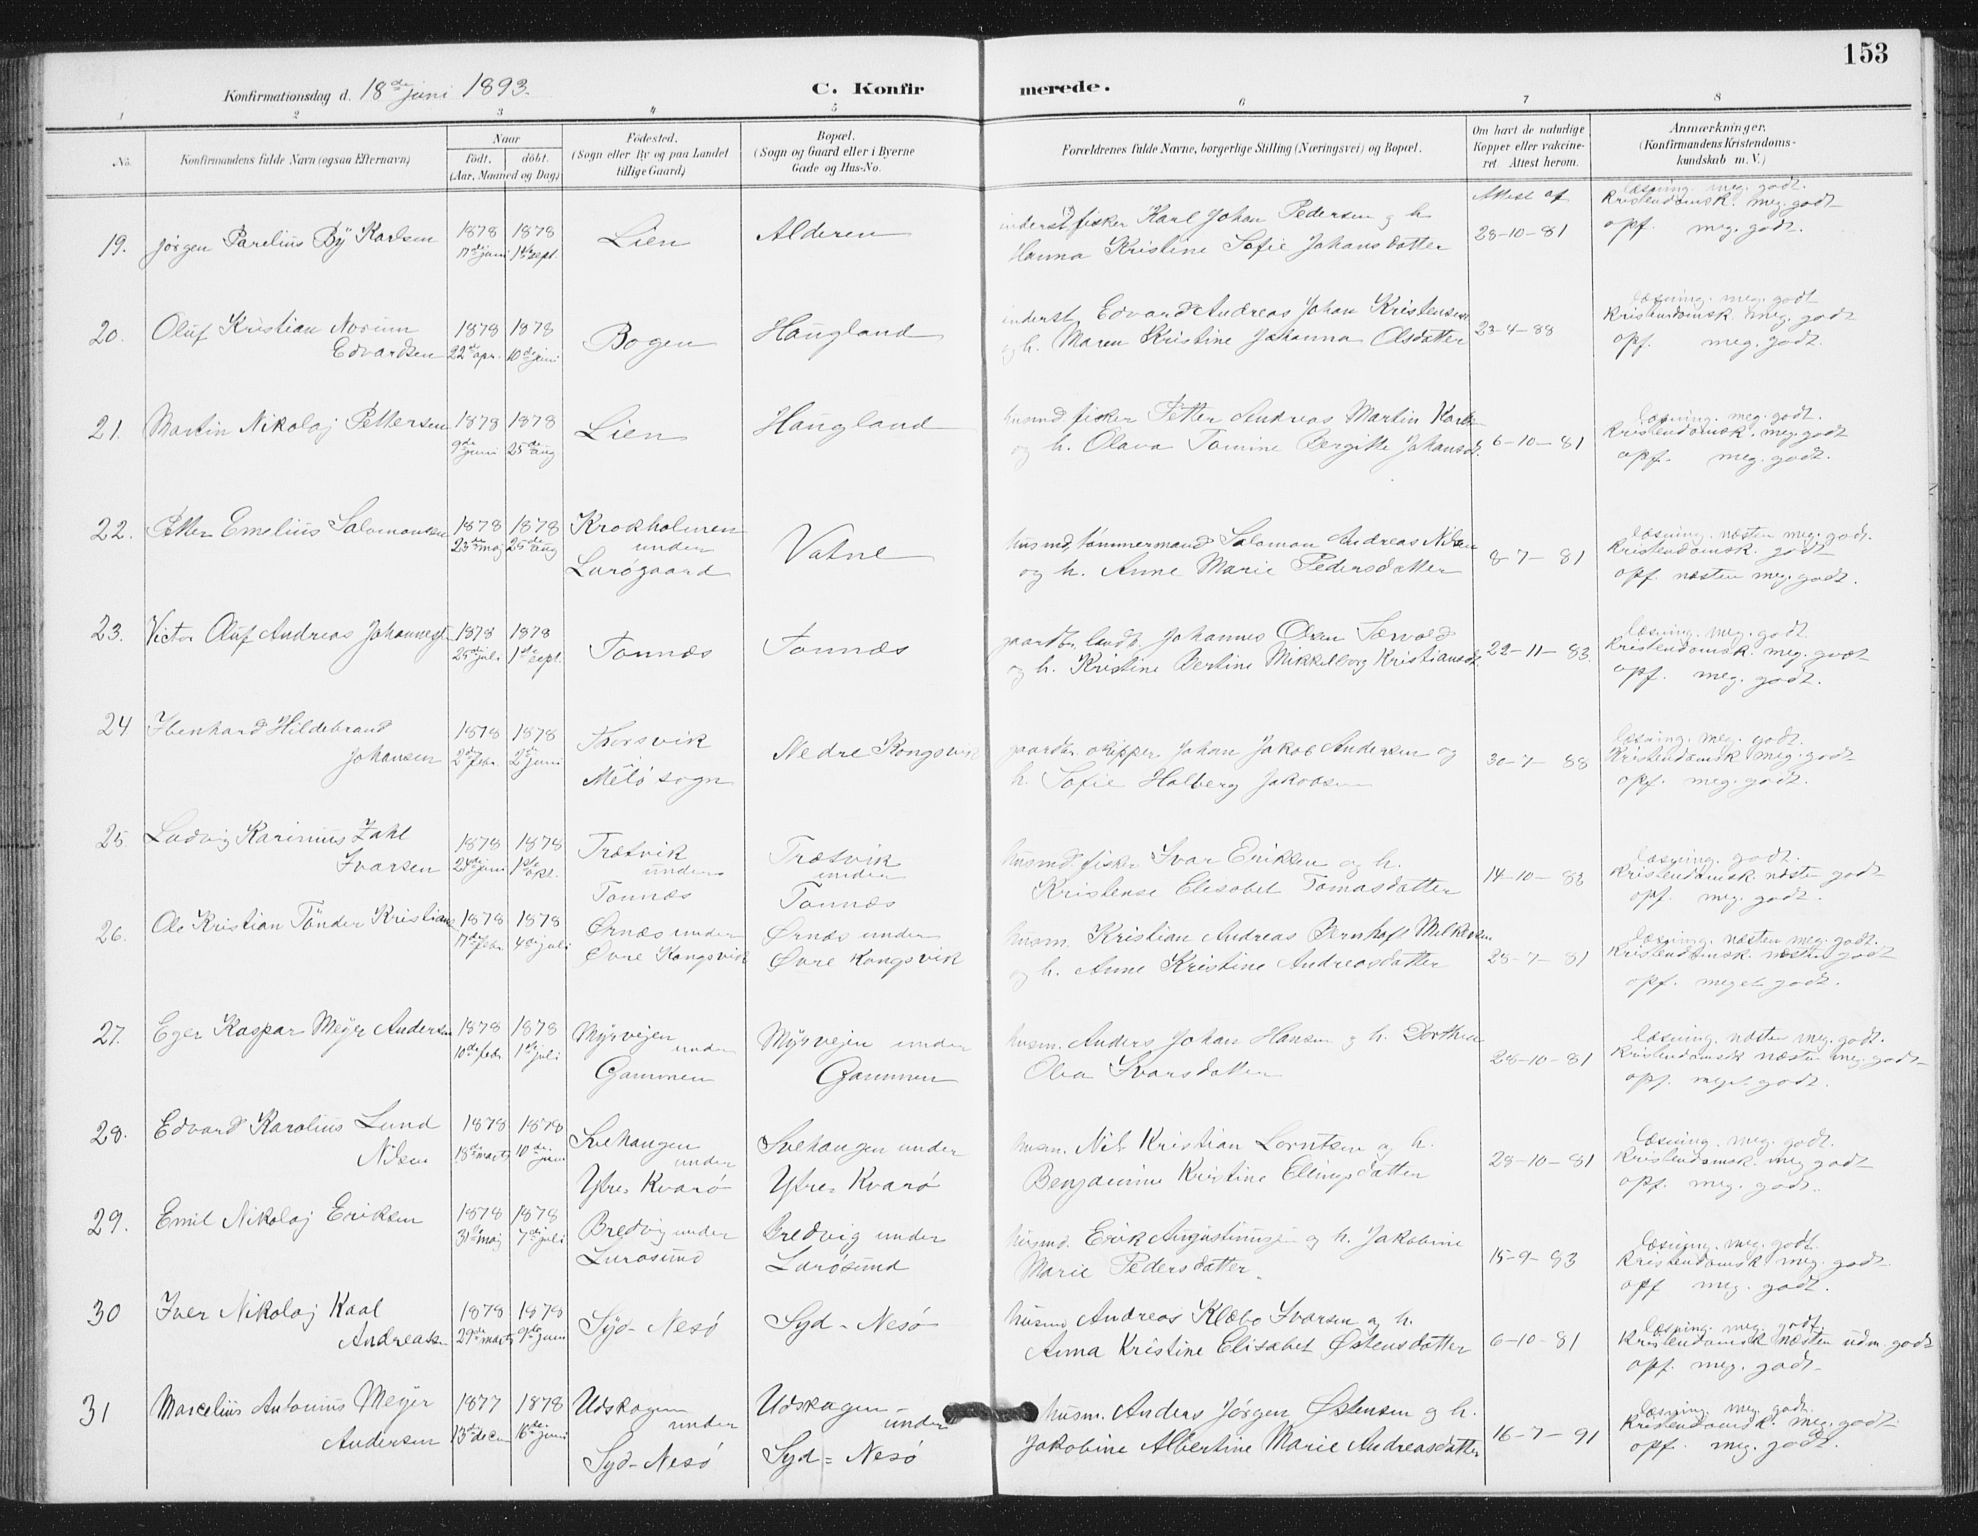 153
Konfirmationsdag d. 18de juni 1893.
C. Konfirmerede.
1 2 3 4 5 6 7 8
No.
Konfirmandens fulde Navn (ogsaa Efternavn)
Naar
født. døbt.
(Aar, Maaned og Dag)
Fødested.
(Sogn eller By og paa Landet
tillige Gaard)
Bopæl.
(Sogn og Gaard eller i Byerne
Gade og Hus-No.
Forældrenes fulde Navne, borgerlige Stilling (Næringsvei) og Bopæl.
Om havt de naturlige
Kopper eller vakcine-
ret Attest herom.
Anmærkninger.
(Konfirmandens Kristendoms-
kundskab m. V.)
19. Jørgen Parelius Bÿ Karlsen
1878 17de juni
1878 1ste sept.
Lien
Alderen
inderst fisker Karl Johan Pedersen og h.
Hanna Kristine Sofie Johansdatter
Attest af
28-10-81
læsning. meg. godt.
Kristendomsk. meg. godt
opf. meg. godt.
20. Oluf Kristian Norum
Edvardsen
1878 22de apr.
1878 10de juni
Bogen
Haugland
inderst Edvard Andreas Johan Kristensen
og h. Maren Kristine Johanna Olsdatter
23-4-88
læsning. meg. godt
Kristendomsk. meg. godt.
opf. meg. godt.
21. Martin Nikolaj Pettersen
1878 9de juni
1878 25de aug
Lien
Haugland
husmd fisker Petter Andreas Martin
og h. Olava Tomine Bergitte Johansd.
6-10-81
læsning. meg. godt.
Kristendomsk. meg. godt
opf. meg. godt.
22. Petter Emelius Salomonsen
1878 23de maj
1878 25de aug
Krokholmen
under
Lurøgaard
Vatne
husmd, tømmermand Salomon Andreas Nilsen
og h. Anne Marie Pedersdatter
8-7-81
læsning. næsten meg. godt.
Kristendomsk. godt
opf. næsten meg. godt.
23. Victor Oluf Andreas
1878 25de juli
1878 1ste sept.
Tonnæs
Tonnæs
gaardbr. landh. Johannes Olsen
og h. Kristine Bertine Mikkelborg Kristiansd.
22-11-83.
læsning. meg. godt.
Kristendomsk. meg. godt
opf. meg. godt.
24 Ibenhard Hildebrand
Johansen
1878 2de febr.
1878 2de juni
Thorsvik
i
Melø sogn
Nedre Kongsvik
gaardbr. skipper Johan Jakob Andersen og
h. Sofie Holberg Jakobsen
30-7-88
læsning. meg. godt.
Kristendomsk meg. godt
opf. meg. godt.
25. Ludvig Karinius Zahl
Ivarsen
1878 24de juni
1878 1ste okt.
Trætvik
under
Tonnæs
Trætvik
under
Tonnæs
husmd. fisker Ivar Eriksen og h.
Kristense Elisabet Tomasdatter
14-10-83
læsning. godt.
Kristendomsk næsten godt
opf. meg. godt.
26. Ole Kristian Tönder Kristians.
1878 17de febr.
1878 4de juli
Ørnæs under
Øvre Kongsvik
Ørnæs under
Øvre Kongsvik
husm. Kristian Andreas Bernhoft
og h. Anne Kristine Andreasdatter
28-7-81
læsning. næsten meg. godt.
Kristendomsk. næsten godt
opf. meget godt.
27. Eger Kaspar Meÿr Andersen
1878 10de febr
1878 1ste juli
Mÿrvejen
under
Gammen
Mÿrvejen under
Gammen
husm. Anders Johan Hansen og h. Dorthea
Olea Ivarsdatter
28-10-81
læsning. næsten meg. godt.
Kristendomsk næsten meg. godt
opf. meget godt.
28. Edvard Karolius Lund
Nilsen
1878 18de marts
1878 10de juni
Svehaugen
under
Ytre Kvarø
Svehaugen under
Ytre Kvarø
husm. Nils Kristian Lorntsen og h.
Benjamine Kristine Ellingsdatter
28-10-81
læsning. meg. godt.
Kristendomsk. meg godt
opf. meg. godt.
29. Emil Nikolaj Eriksen
1878 31te maj
1878 7de juli
Bredvig under
Lurøsund
Bredvig under
Lurøsund
husmd. Erik Augustinusen og h. Jakobine
Marie Pedersdatter.
15-9-83
læsning. meg. godt.
Kristendomsk meg. godt.
opf meg. godt.
30 Iver Nikolaj Kaal
Andreassen
1878 29de marts
1878 9de juni
Sÿd-Nesø
Syd-Nesø
husmd Andreas Klæbo Ivarsen og h.
Anna Kristine Elisabet Østensdatter
6-10-81
læsning. meg. godt.
Kristendomsk næsten udm. godt
opf. meg. godt.
31 Marcelius Antonius Meÿer
Andersen
1877 13de decm
1878 16de juni
Udskagen
under
Syd-Nesø
Udskagen
under
Syd-Nesø
husm. Anders Jørgen Østensen og h.
Jakobine Albertine Marie Andreasdatter
16-7-91
læsning. meg. godt.
Kristendomsk. meg. godt.
opf. meg. godt.